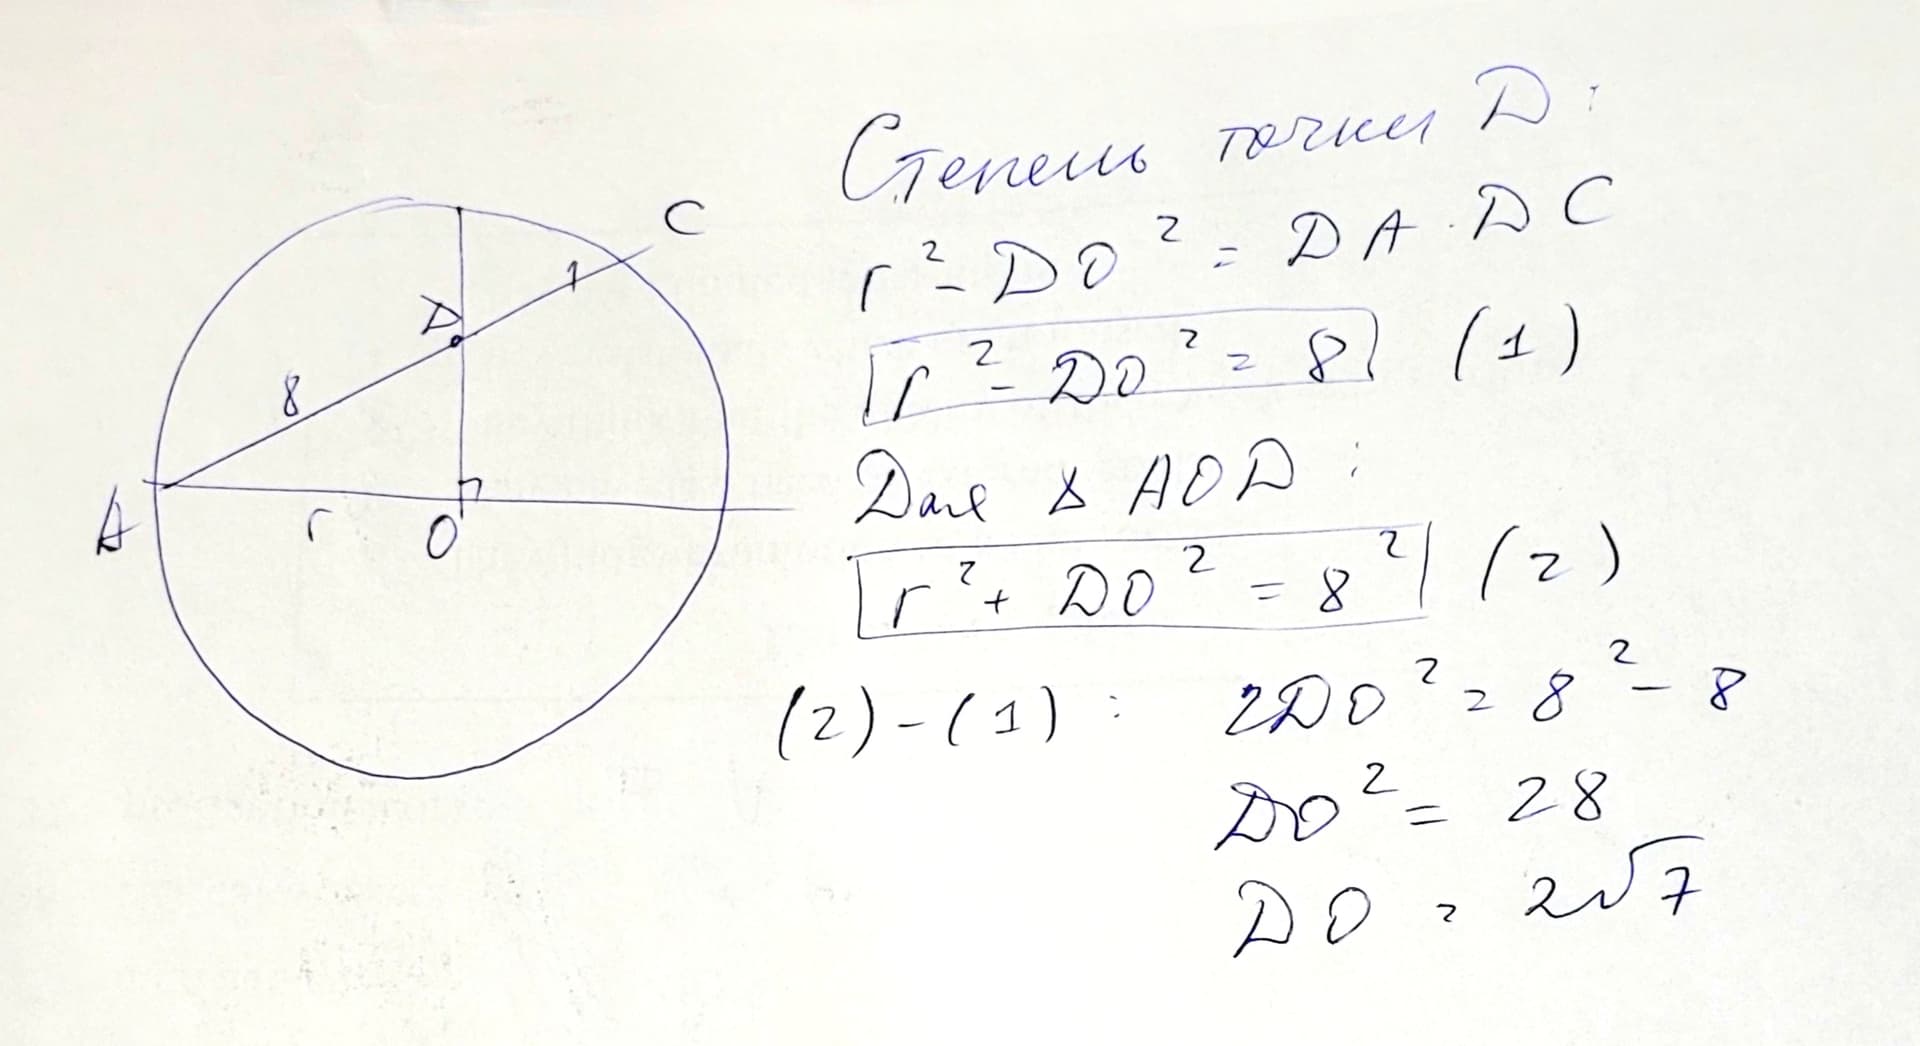 C
1
D
8
A
r
O
Степень точки D:
r² - DO² = DA · DC
r² - DO² = 8 (1)
Для Δ AOD:
r² + DO² = 8² (2)
(2)-(1): 2DO² = 8² - 8
DO² = 28
DO = 2√7